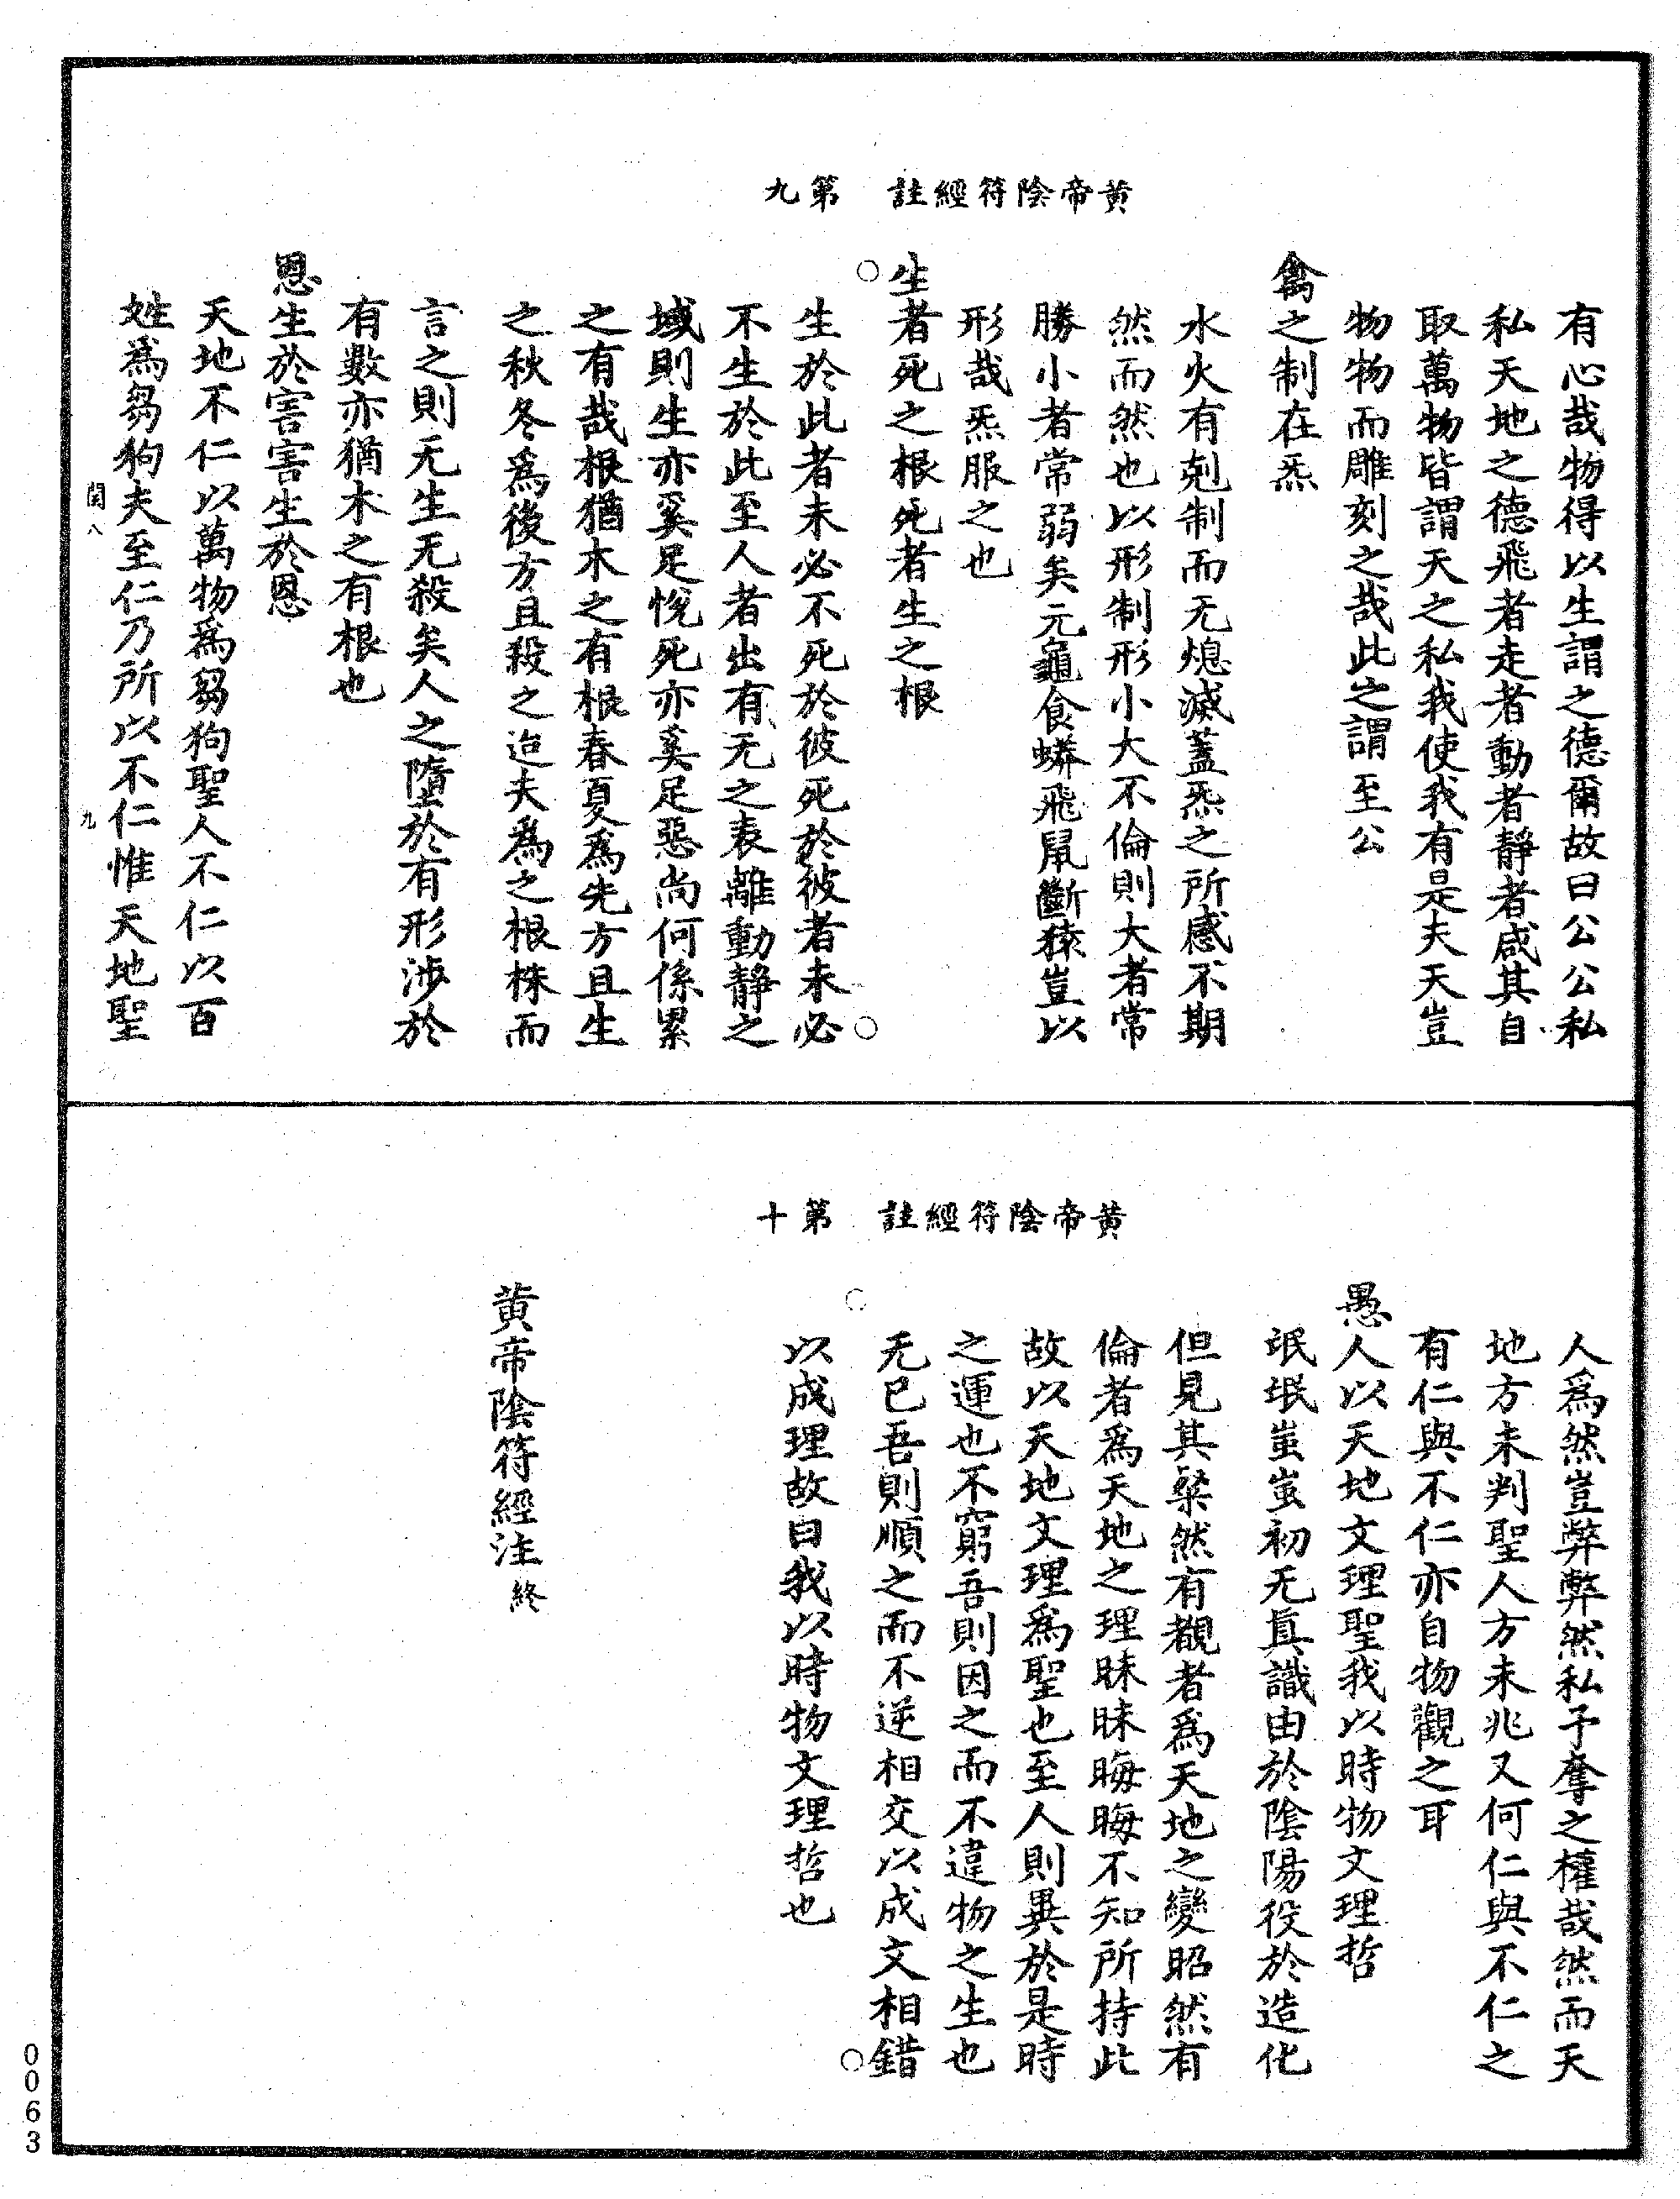 黃帝陰符經註　第九
有心哉物得以生謂之德爾故曰公公私
私天地之德飛者走者動者靜者咸其自
取萬物皆謂天之私我使我有是夫天豈
物物而雕刻之哉此之謂至公
禽之制在炁
水火有剋制而无熄滅蓋炁之所感不期
然而然也以形制形小大不倫則大者常
勝小者常弱矣元龜食蟒飛鼠斷猿豈以
形哉炁服之也
生者死之根死者生之根
生於此者未必不死於彼死於彼者未必
不生於此至人者出有无之表離動靜之
域則生亦奚足悅死亦奚足惡尚何係累
之有哉根猶木之有根春夏為先方且生
之秋冬為後方且殺之迨夫為之根株而
言之則无生无殺矣人之墮於有形涉於
有數亦猶木之有根也
恩生於害害生於恩
天地不仁以萬物為芻狗聖人不仁以百
姓為芻狗夫至仁乃所以不仁惟天地聖
閏八　九
黃帝陰符經註　第十
人為然豈弊弊然私予奪之權哉然而天
地方未判聖人方未兆又何仁與不仁之
有仁與不仁亦自物觀之耳
愚人以天地文理聖我以時物文理哲
氓氓蚩蚩初无真識由於陰陽役於造化
但見其粲然有覩者為天地之變昭然有
倫者為天地之理昧昧晦晦不知所持此
故以天地文理為聖也至人則異於是時
之運也不窮吾則因之而不違物之生也
无已吾則順之而不逆相交以成文相錯
以成理故曰我以時物文理哲也
黃帝陰符經注終
0063